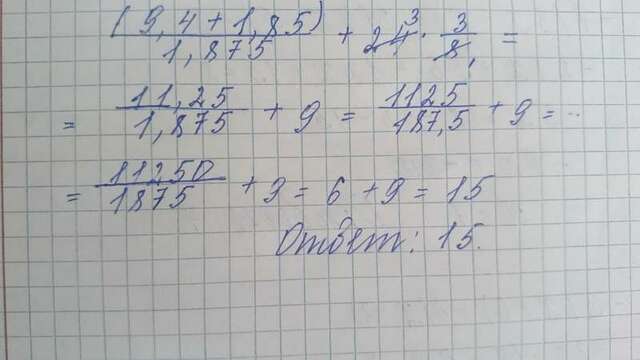 (9,4 + 1,85) / 1,875 + 24³ · 3/8₁ =
= 11,25 / 1,875 + 9 = 1125 / 187,5 + 9 = ...
= 11250 / 1875 + 9 = 6 + 9 = 15
Ответ: 15.